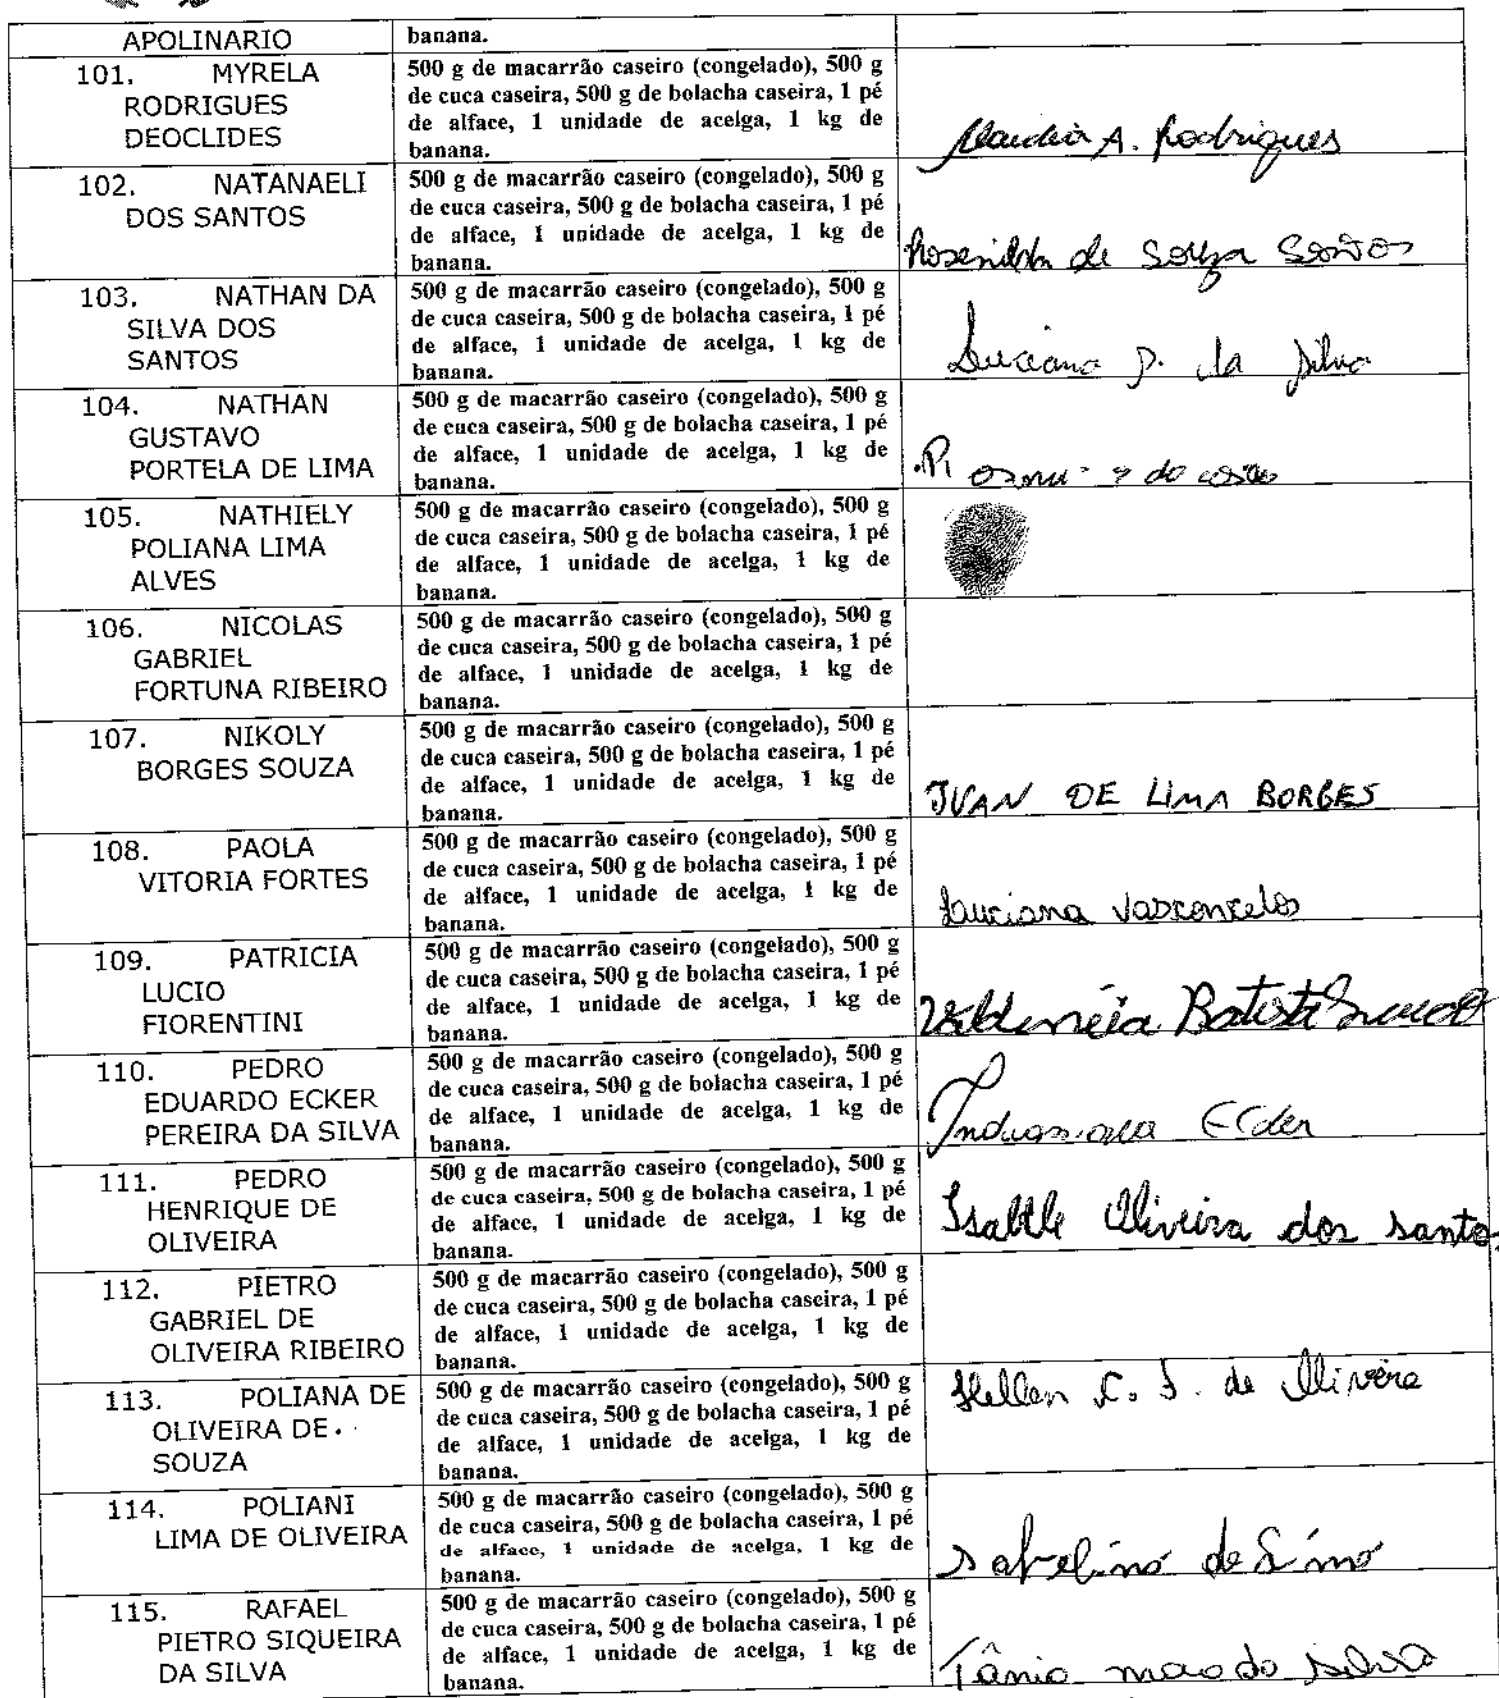 APOLINARIO
banana.
101. MYRELA
RODRIGUES
DEOCLIDES
500 g de macarrão caseiro (congelado), 500 g
de cuca caseira, 500 g de bolacha caseira, 1 pé
de alface, 1 unidade de acelga, 1 kg de
banana.
Claudia A. Rodrigues
102. NATANAELI
DOS SANTOS
500 g de macarrão caseiro (congelado), 500 g
de cuca caseira, 500 g de bolacha caseira, 1 pé
de alface, 1 unidade de acelga, 1 kg de
banana.
Rosenilda de Souza Santos
103. NATHAN DA
SILVA DOS
SANTOS
500 g de macarrão caseiro (congelado), 500 g
de cuca caseira, 500 g de bolacha caseira, 1 pé
de alface, 1 unidade de acelga, 1 kg de
banana.
Luciana P. da Silva
104. NATHAN
GUSTAVO
PORTELA DE LIMA
500 g de macarrão caseiro (congelado), 500 g
de cuca caseira, 500 g de bolacha caseira, 1 pé
de alface, 1 unidade de acelga, 1 kg de
banana.
105. NATHIELY
POLIANA LIMA
ALVES
500 g de macarrão caseiro (congelado), 500 g
de cuca caseira, 500 g de bolacha caseira, 1 pé
de alface, 1 unidade de acelga, 1 kg de
banana.
106. NICOLAS
GABRIEL
FORTUNA RIBEIRO
500 g de macarrão caseiro (congelado), 500 g
de cuca caseira, 500 g de bolacha caseira, 1 pé
de alface, 1 unidade de acelga, 1 kg de
banana.
107. NIKOLY
BORGES SOUZA
500 g de macarrão caseiro (congelado), 500 g
de cuca caseira, 500 g de bolacha caseira, 1 pé
de alface, 1 unidade de acelga, 1 kg de
banana.
IVAN DE LIMA BORGES
108. PAOLA
VITORIA FORTES
500 g de macarrão caseiro (congelado), 500 g
de cuca caseira, 500 g de bolacha caseira, 1 pé
de alface, 1 unidade de acelga, 1 kg de
banana.
Luciana Vasconcelos
109. PATRICIA
LUCIO
FIORENTINI
500 g de macarrão caseiro (congelado), 500 g
de cuca caseira, 500 g de bolacha caseira, 1 pé
de alface, 1 unidade de acelga, 1 kg de
banana.
Valdineia Batista
110. PEDRO
EDUARDO ECKER
PEREIRA DA SILVA
500 g de macarrão caseiro (congelado), 500 g
de cuca caseira, 500 g de bolacha caseira, 1 pé
de alface, 1 unidade de acelga, 1 kg de
banana.
111. PEDRO
HENRIQUE DE
OLIVEIRA
500 g de macarrão caseiro (congelado), 500 g
de cuca caseira, 500 g de bolacha caseira, 1 pé
de alface, 1 unidade de acelga, 1 kg de
banana.
Oliveira dos Santos
112. PIETRO
GABRIEL DE
OLIVEIRA RIBEIRO
500 g de macarrão caseiro (congelado), 500 g
de cuca caseira, 500 g de bolacha caseira, 1 pé
de alface, 1 unidade de acelga, 1 kg de
banana.
113. POLIANA DE
OLIVEIRA DE
SOUZA
500 g de macarrão caseiro (congelado), 500 g
de cuca caseira, 500 g de bolacha caseira, 1 pé
de alface, 1 unidade de acelga, 1 kg de
banana.
Hellen C. S. de Oliveira
114. POLIANI
LIMA DE OLIVEIRA
500 g de macarrão caseiro (congelado), 500 g
de cuca caseira, 500 g de bolacha caseira, 1 pé
de alface, 1 unidade de acelga, 1 kg de
banana.
115. RAFAEL
PIETRO SIQUEIRA
DA SILVA
500 g de macarrão caseiro (congelado), 500 g
de cuca caseira, 500 g de bolacha caseira, 1 pé
de alface, 1 unidade de acelga, 1 kg de
banana.
Tânia